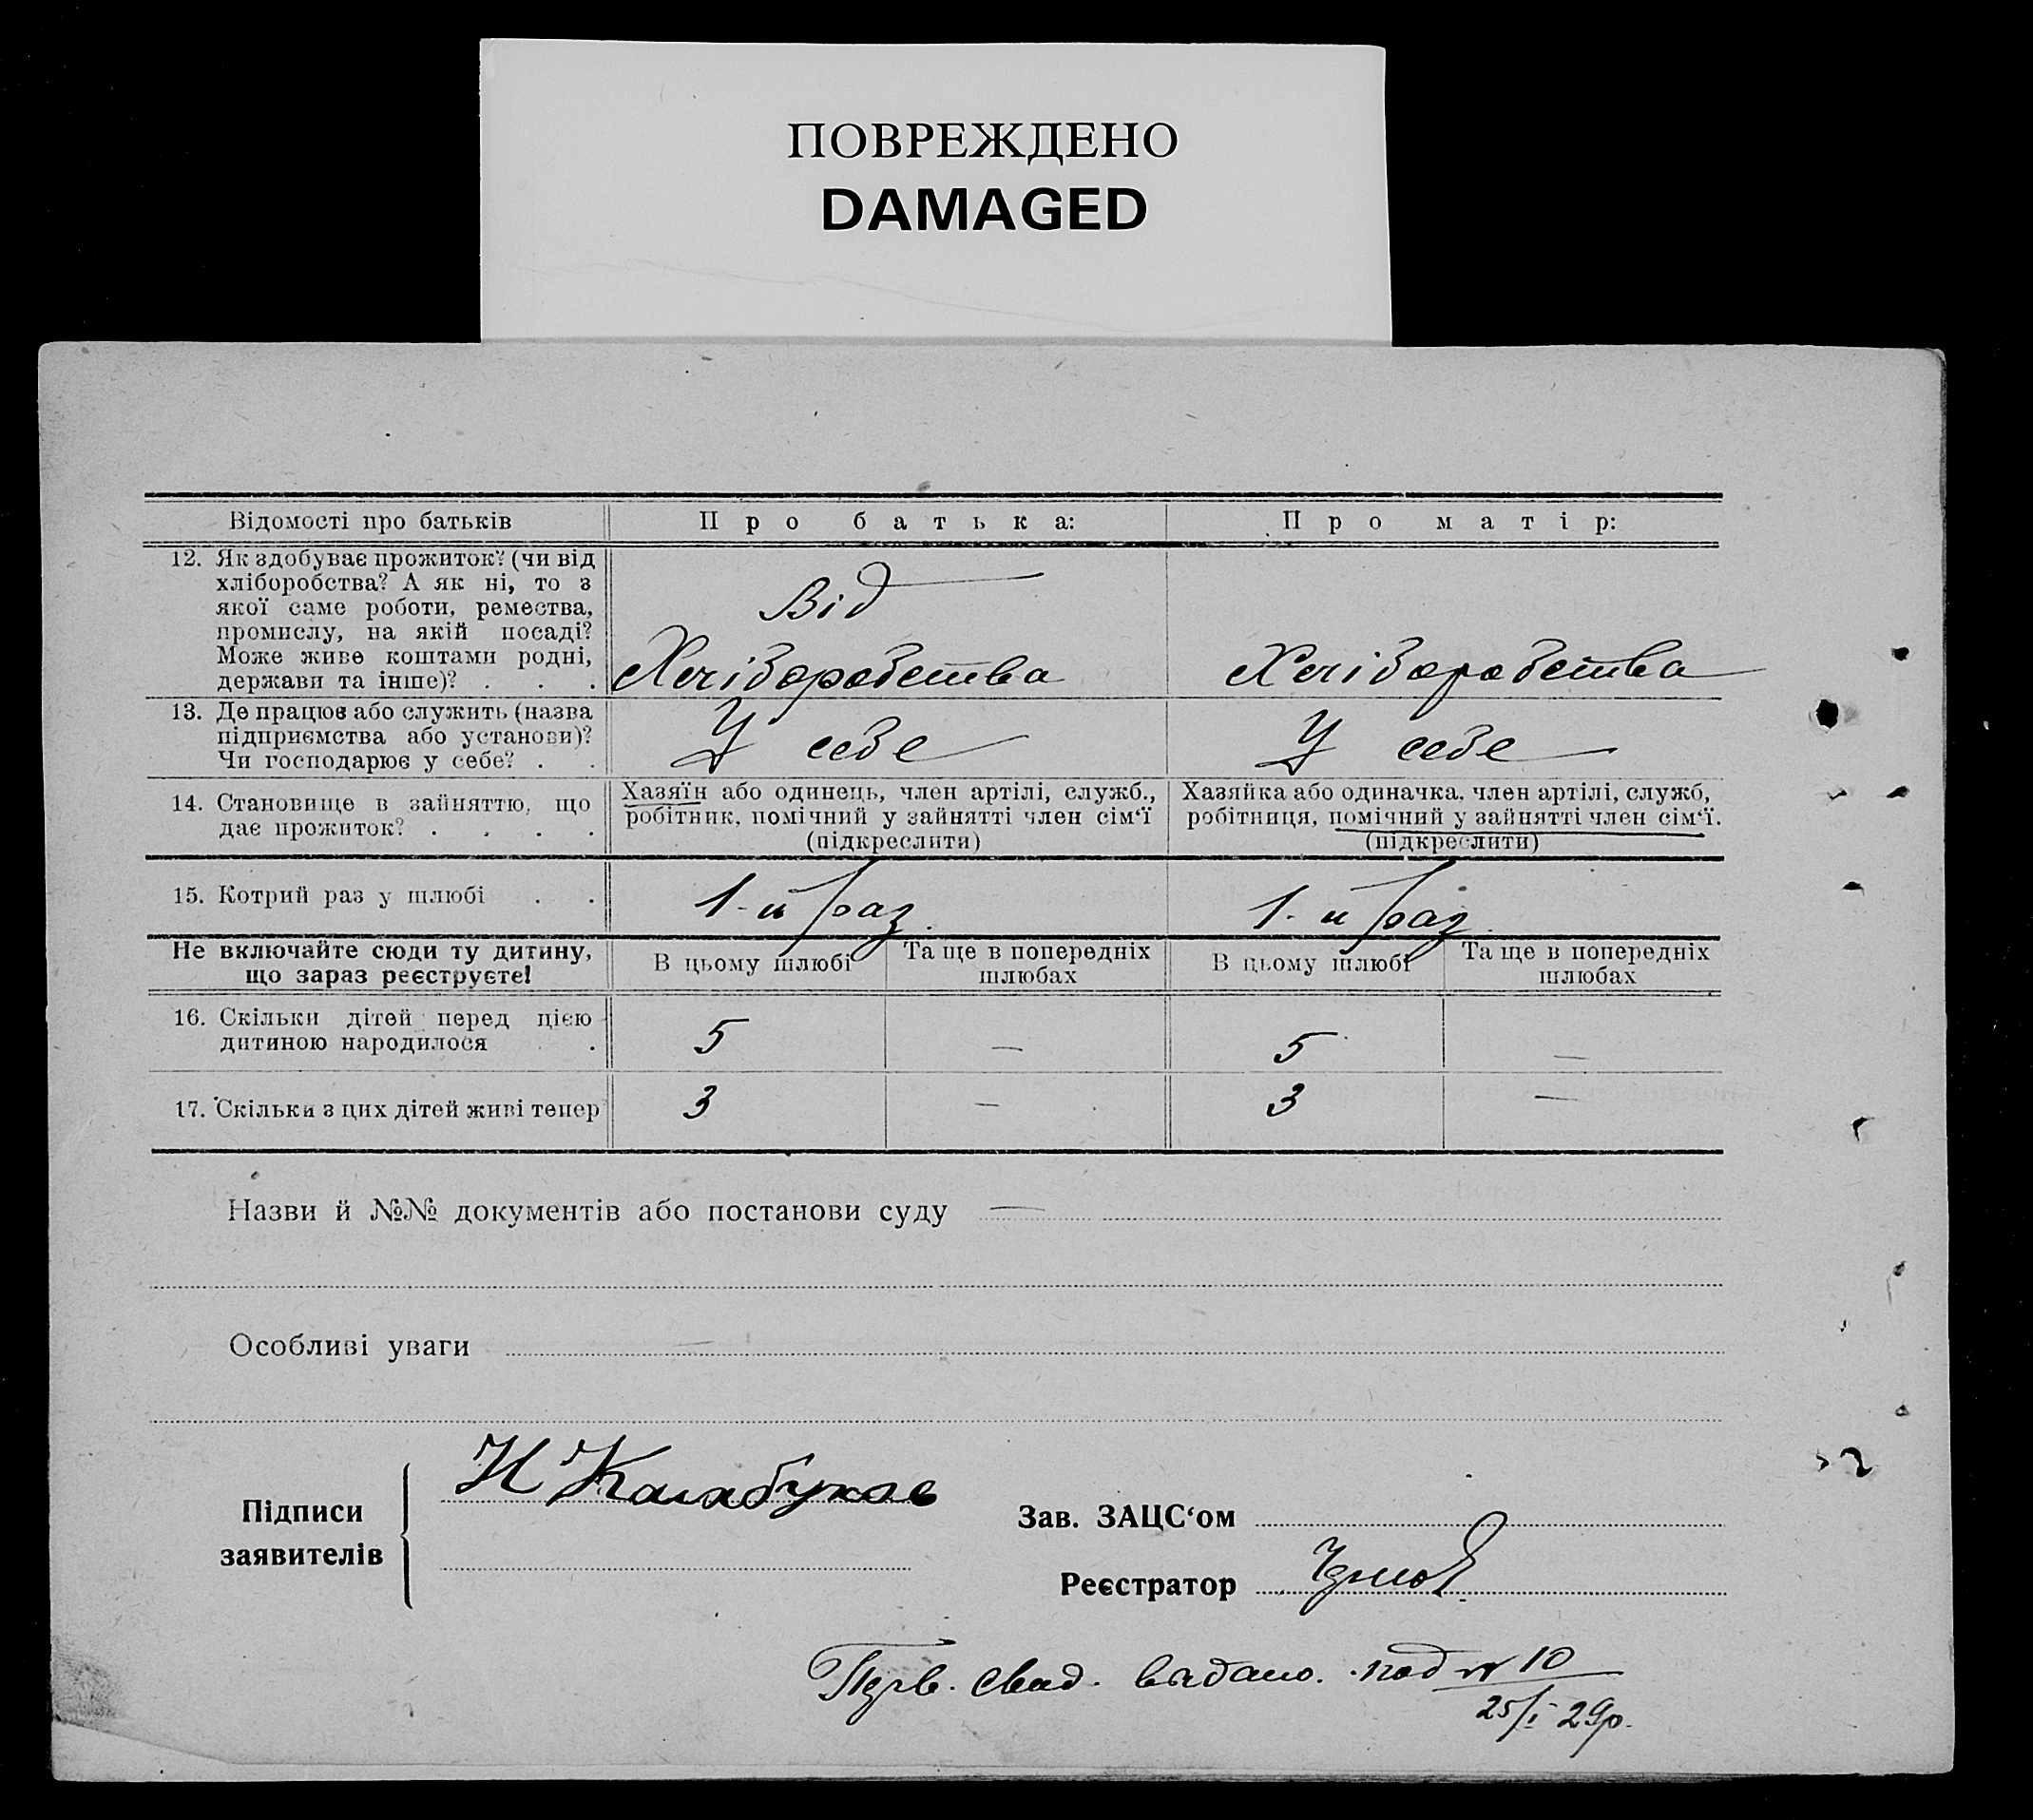 ПОВРЕЖДЕНО
DAMAGED
Відомості про батьків
Про батька:
Про матір:
12. Як здобуває прожиток? (чи від
хліборобства? А як ні, то з
якої саме роботи, ремества,
промислу, на якій посаді?
Може живе коштами родні,
держави та інше)? . . .
Від
Хліборобства
Хліборобства
13. Де працює або служить (назва
підприємства або установи)?
Чи господарює у себе? . .
У себе
У себе
14. Становище в зайняттю, що
дає прожиток? . . . .
Хазяїн або одинець, член артілі, служб.,
робітник, помічний у зайнятті член сім‘ї
(підкреслити)
Хазяйка або одиначка, член артілі, служб,
робітниця, помічний у зайнятті член сім‘ї.
(підкреслити)
15. Котрий раз у шлюбі . .
1-й раз.
1-й раз.
Не включайте сюди ту дитину,
що зараз реєструєте!
В цьому шлюбі
Та ще в попередніх
шлюбах
В цьому шлюбі
Та ще в попередніх
шлюбах
16. Скільки дітей перед цією
дитиною народилося .
5
—
5
—
17. Скільки з цих дітей живі тепер
3
—
3
—
Назви й №№ документів або постанови суду —
Особливі уваги —
Підписи
заявителів
Н Калабухов
Зав. ЗАЦС‘ом
Реєстратор
видано. под № 10
25/I 29р.